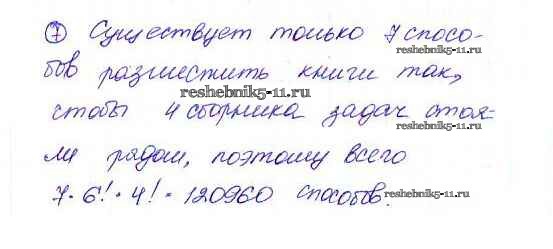 ⑦ Существует только 7 спосо-
reshebnik5-11.ru
бов разместить книги так,
reshebnik5-11.ru
чтобы 4 сборника задач стоя-
reshebnik5-11.ru
ли рядом, поэтому всего
7·6!·4!·120960 способов.
reshebnik5-11.ru